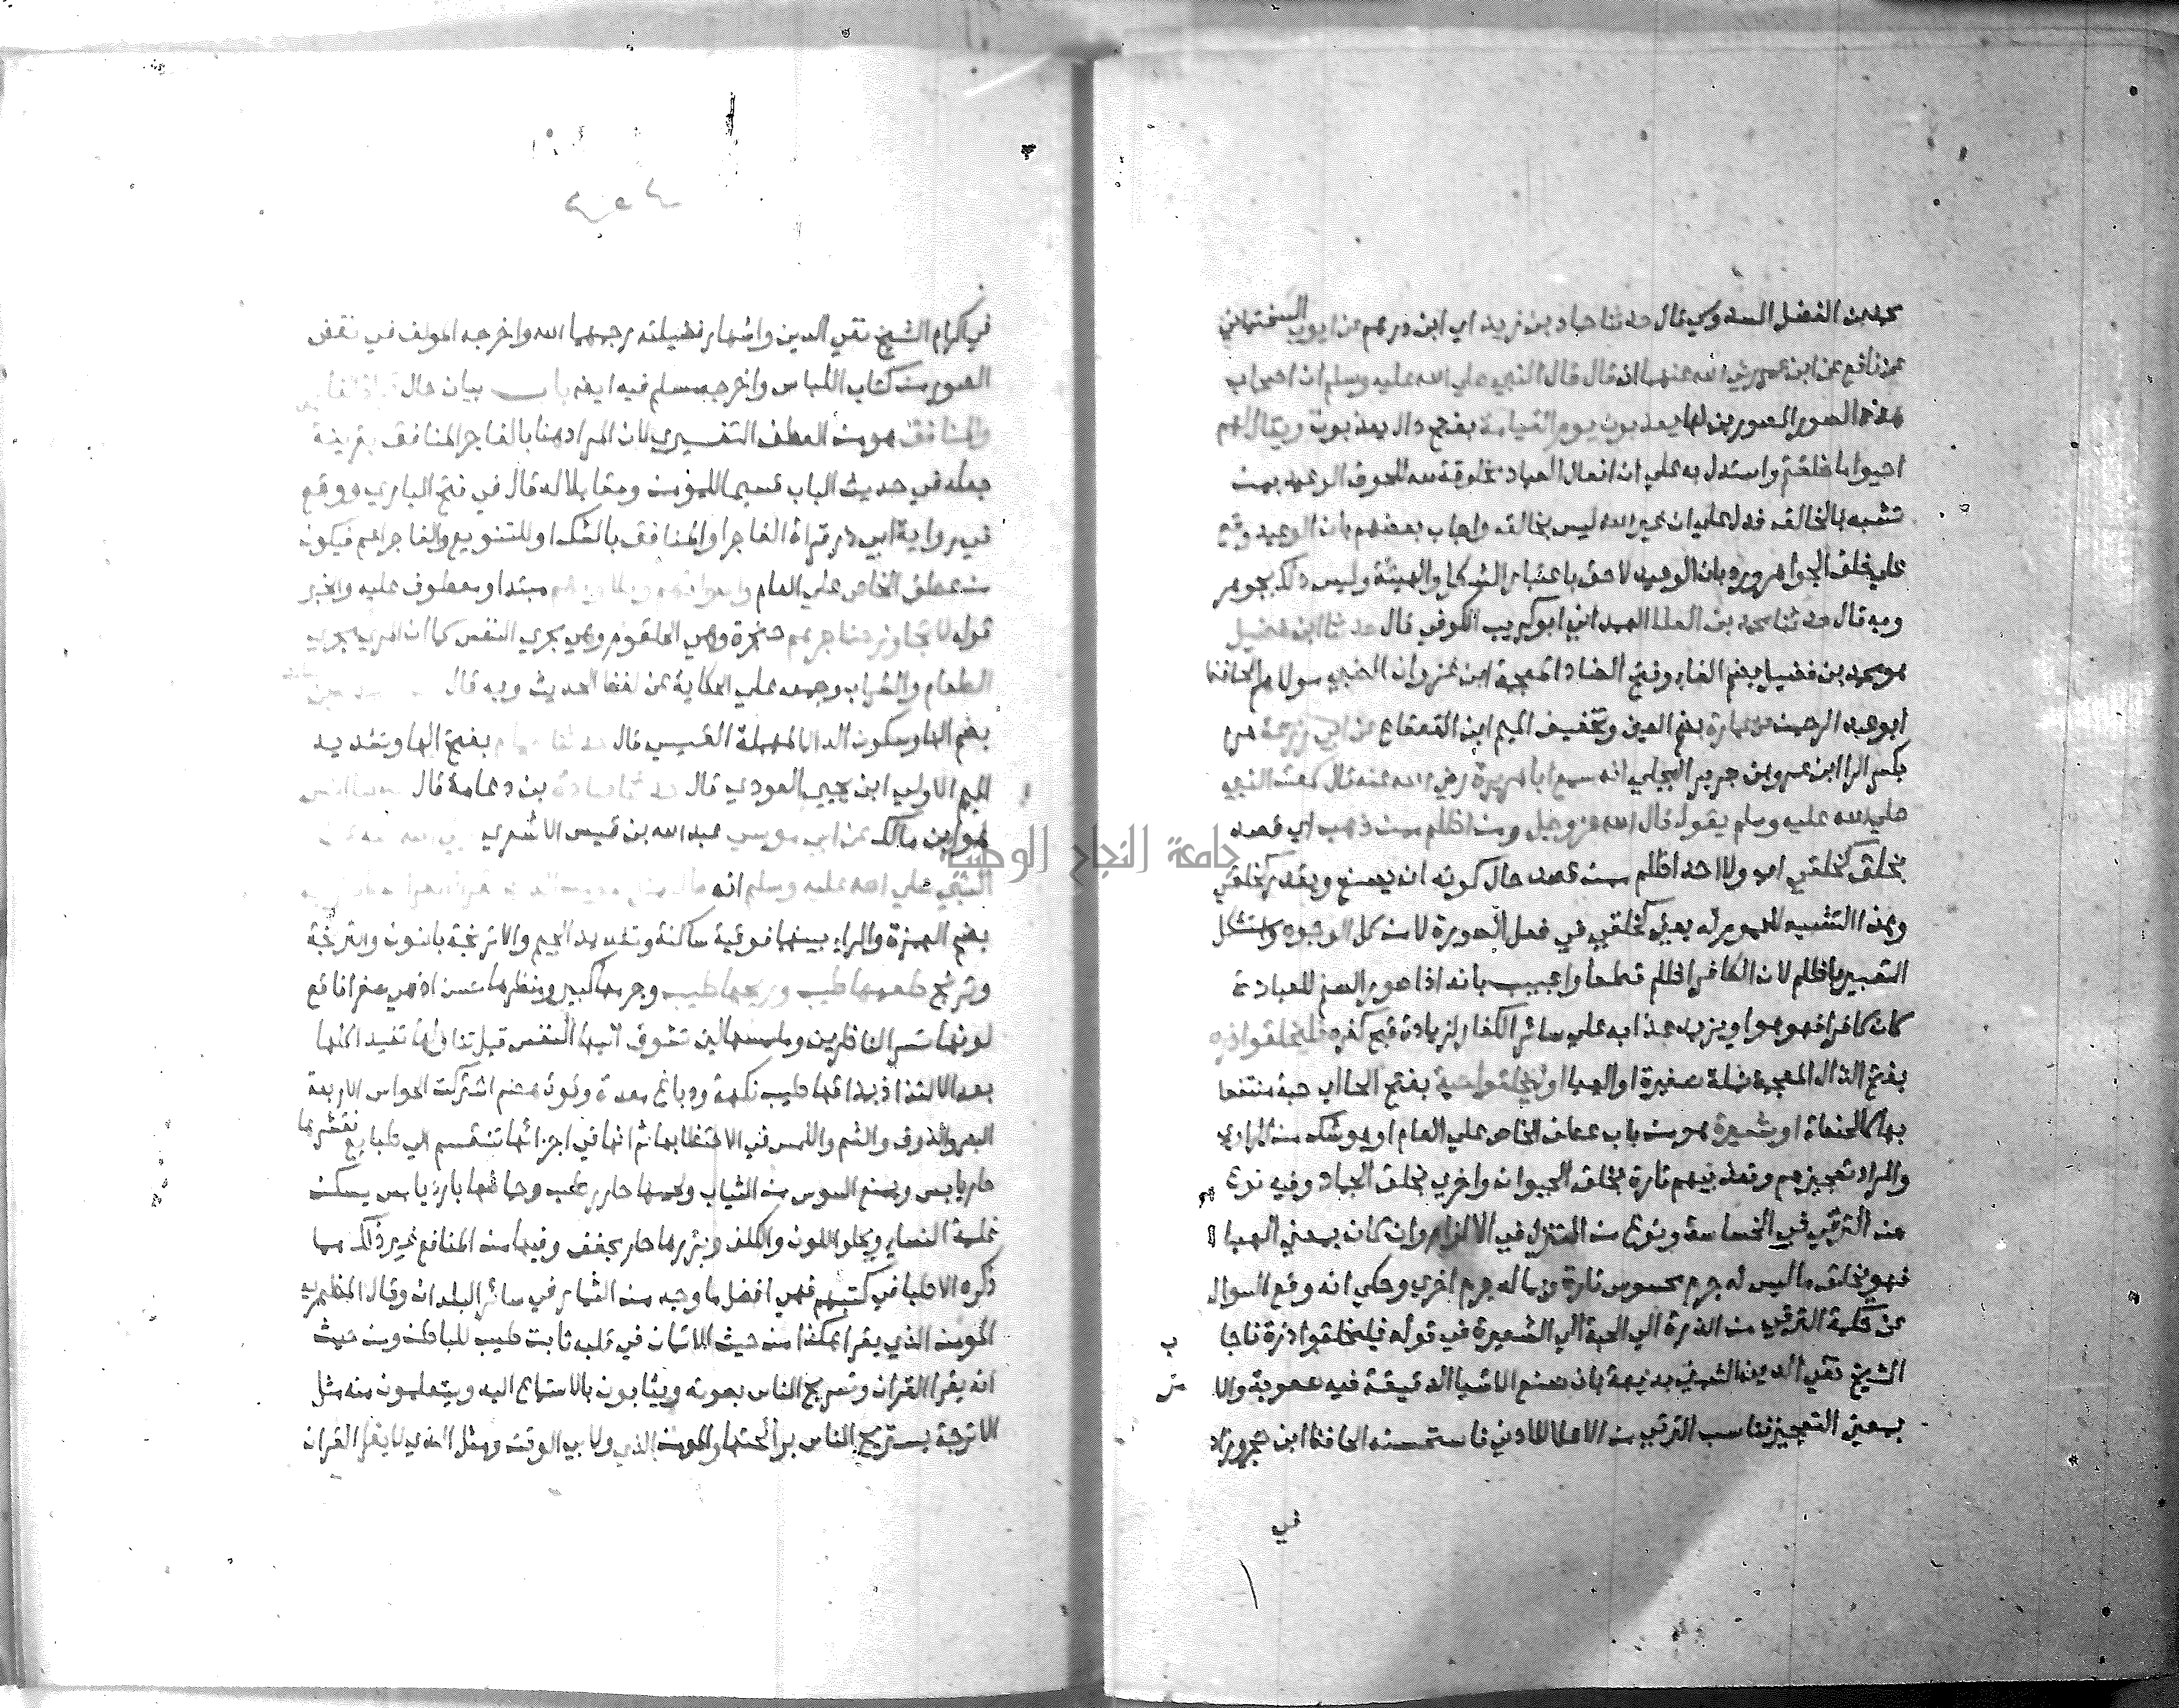 محمد بن الفضل السدوسي قال حدثنا حماد بن زيد اي ابن درهم عن ايوب السختياني
عن نافع عن ابن عمر رضي الله عنهما انه قال قال النبي صلي الله عليه وسلم ان اصحاب
هذه الصور المصورين لها يعذبون يوم القيامة بفتح ذال يعذبون ويقال لهم
احيوا ما خلقتم واستدل به علي ان افعال العباد مخلوقة لله للحوق الوعيد بمن
تشبه بالخالق فدل علي ان غير الله ليس بخالق واجاب بعضهم بان الوعيد وقع
علي خلق الجواهر ورد بان الوعيد لاحق باعتبار الشكل والهيئة وليس ذلك بجوهر
وبه قال حدثنا محمد بن العلا الهمداني ابو كريب الكوفي قال حدثنا ابن فضيل
هو محمد بن فضيل بضم الفاء وفتح الضاد المعجمة ابن غزوان الضبي مولاهم الحافظ
ابو عبد الرحمن عن عمارة بضم العين وتخفيف الميم ابن القعقاع عن ابي زرعة هرم
بكسر الرا ابن عمرو بن جرير البجلي انه سمع ابا هريرة رضي الله عنه قال سمعت النبي
صلي الله عليه وسلم يقول قال الله عز وجل ومن اظلم ممن ذهب اي قصد
يخلق كخلقي اي ولا احد اظلم ممن قصد حال كونه ان يصنع ويقدر كخلقي
وهذا التشبيه لا عموم له يعني كخلقي في فعل الصورة لا من كل الوجوه واستشكل
التعبير باظلم لان الكافر اظلم قطعا واجيب بانه اذا صور الصنم للعبادة
كان كافرا فهو هو او يزيد عذابه علي سائر الكفار لزيادة قبح كفره فليخلقوا ذرة
بفتح الذال المعجمة نملة صغيرة او الهبا او ليخلقوا حبة بفتح الحا اي حبة منتفعا
بها كالحنطة او شعيرة هو من باب عطف الخاص علي العام او هو شك من الراوي
والمراد تعجيزهم وتعذيبهم تارة بخلق الحيوان واخري بخلق الجماد وفيه نوع
من الترقي في الخساسة ونوع من التنزل في الالزام وان كان بمعني الهبا
فهو بخلق ما ليس له جرم محسوس تارة وبما له جرم اخري وحكي انه وقع السوال
عن حكمة الترقي من الذرة الي الحبة الي الشعيرة في قوله فليخلقوا ذرة فاجا
الشيخ تقي الدين الشمني بديهة بان صنع الاشيا الدقيقة فيه صعوبة والا
بمعني التعجيز فناسب الترقي من الاعلا للادني فاستحسنه الحافظ ابن حجر وزاد
في
في اكرام الشيخ تقي الدين واشهار فضيلته رحمهما الله واخرجه المولف في نقض
الصور من كتاب اللباس واخرجه مسلم فيه ايضا باب بيان حال
والمنافق هو من العطف التفسيري لان المراد هنا بالفاجر المنافق بقرينة
جعله في حديث الباب قسيما للمؤمن ومقابلا له قال في فتح الباري ووقع
في رواية ابي ذر قراة الفاجر او المنافق بالشك او للتنويع والفاجر اعم فيكون
من عطف الخاص علي العام واصواتهم وتلاوتهم مبتدا ومعطوف عليه والخبر
قوله لا تجاوز حناجرهم حنجرة وهي الحلقوم وهي مجري النفس كما ان المريء مجري
الطعام والشراب وجمعه علي الحكاية عن لفظ الحديث وبه قال
بضم الها وسكون الدال المهملة القيسي قال حدثنا همام بفتح الها وتشديد
الميم الاولي ابن يحيي العوذي قال حدثنا قتادة بن دعامة قال حدثنا انس
هو ابن مالك عن ابي موسي عبد الله بن قيس الاشعري رضي الله عنه عن
النبي صلي الله عليه وسلم انه قال
بضم الهمزة والراء بينهما فوقية ساكنة وتشديد الجيم والاترنجة بالنون والترنجة
وترنج طعمها طيب وريحها طيب وجرمها كبير ومنظرها حسن اذ هي صفرا فاقع
لونها تسر الناظرين وملمسها لين تتشوق اليها النفس قبل تناولها تفيد اكلها
بعد الالتذاذ بمذاقها طيب نكهة ودباغ معدة وقوة هضم اشتركت الحواس الاربعة
البصر والذوق والشم واللمس في الاحتظا بها ثم انها في اجزائها تنقسم الي طبايع فقشرها
حار يابس ويمنع السوس من الثياب ولحمها حار رطب وحماضها بارد يابس يسكن
غلمة النساء ويجلو اللون والكلف وبزرها حار مجفف وفيها من المنافع غير ذلك مما
ذكره الاطبا في كتبهم فهي افضل ما وجد من الثمار في سائر البلدان وقال المظهري
المومن الذي يقرا هكذا من حيث الايمان في قلبه ثابت طيب للباطن ومن حيث
انه يقرا القران وتستريح الناس بصوته ويثابون بالاستماع اليه ويتعلمون منه مثل
الاترجة يستريح الناس برائحتها والمومن الذي ولابي الوقت ومثل الذي لا يقرا القران
جامعة النجاح الوطنية